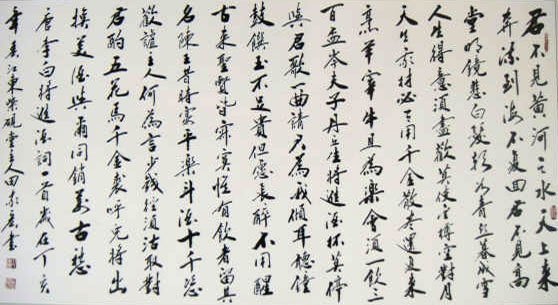 君不見黃河之水天上來
奔流到海不復回君不見高
堂明鏡悲白髮朝如青丝暮成雪
人生得意須盡歡莫使金樽空對月
天生我材必有用千金散盡還復來
烹羊宰牛且為樂會須一飲三
百盃岑夫子丹丘生將進酒杯莫停
與君歌一曲請君為我傾耳聽鐘
鼓饌玉不足貴但願長醉不用醒
古來聖賢皆寂寞惟有飲者留其
名陳王昔時宴平樂斗酒十千恣
歡謔主人何為言少錢徑須沽取對
君酌五花馬千金裘呼兒將出
換美酒與爾同銷萬古愁
唐李白將進酒詞一首歲在丁亥
年春江東紫硯堂主人田書